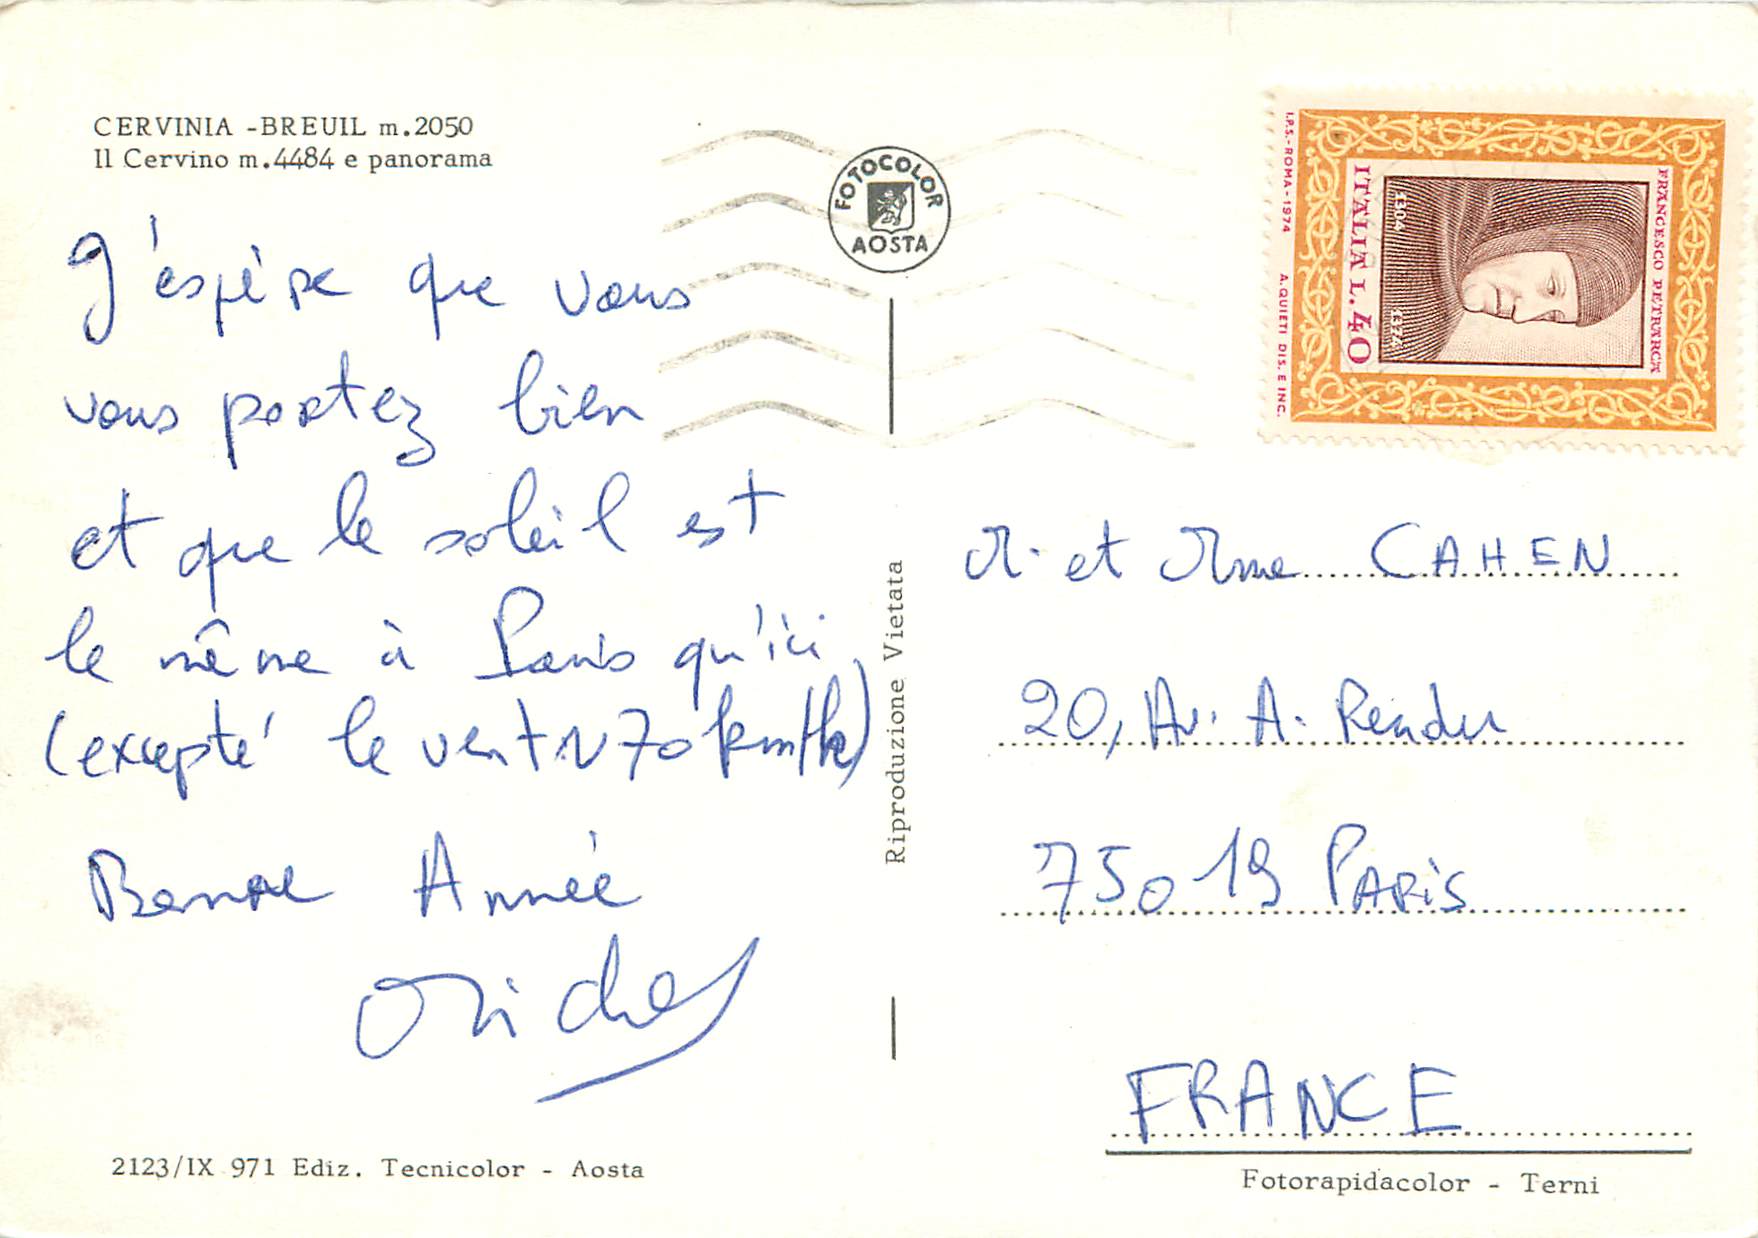 CERVINIA -BREUIL m.2050
Il Cervino m.4484 e panorama
J'espère que vous
vous portez bien
et que le soleil est
le même à Paris qu'ici
(excepté le vent ~ 70 km/h)
Bonne Année
Michel
2123/IX 971 Ediz. Tecnicolor - Aosta
FOTOCOLOR
AOSTA
Riproduzione Vietata
I.P.S.-ROMA-1974 A.QUIETI DIS. E INC.
ITALIA L.40
1304
1374
FRANCESCO PETRARCA
M. et Mme CAHEN
20, Av. A. Rendu
75019 PARIS
FRANCE
Fotorapidacolor - Terni